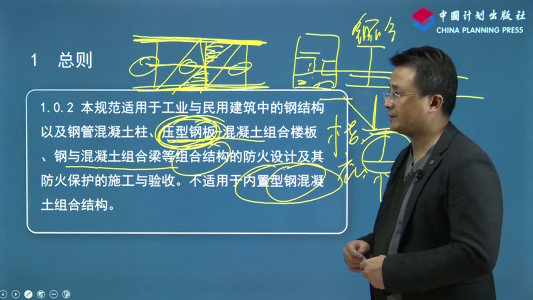 中国计划出版社
CHINA PLANNING PRESS
1 总则
1.0.2 本规范适用于工业与民用建筑中的钢结构
以及钢管混凝土柱、压型钢板-混凝土组合楼板
、钢与混凝土组合梁等组合结构的防火设计及其
防火保护的施工与验收。不适用于内置型钢混凝
土组合结构。